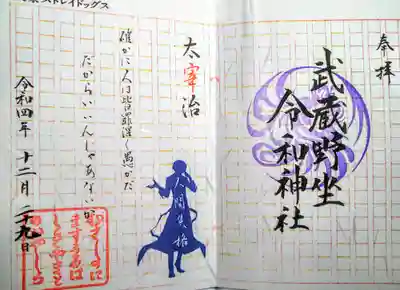 奉拝
武蔵野坐
令和神社
文豪ストレイドッグス
太宰治
確かに人は皆罪深く愚かだ
だからいいんじゃあないか
人間失格
令和四年 十二月 二十九日